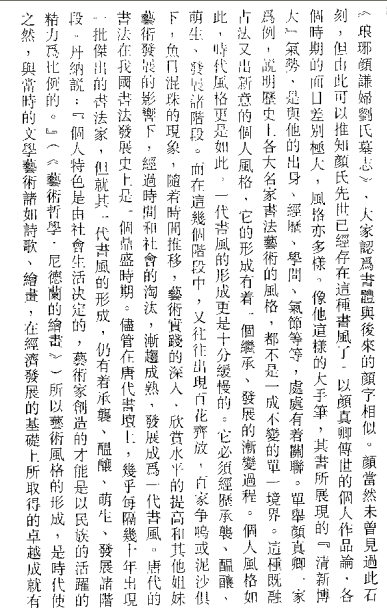 《琅琊顏謙婦劉氏墓志》，大家認爲書體與後來的顏字相似。顏當然未曾見過此石
刻，但由此可以推知顏氏先世已經存在這種書風了。以顏真卿傳世的個人作品論，各
個時期的面目差別極大，風格亦多樣。像他這樣的大手筆，其書所展現的『清新博
大』氣勢，是與他的出身、經歷、學問、氣節等等，處處有着關聯。單舉顏真卿一家
爲例，說明歷史上各大名家書法藝術的風格，都不是一成不變的單一境界。這種既融
古法又出新意的個人風格，它的形成有着一個繼承、發展的漸變過程。個人風格如
此，時代風格更是如此，一代書風的形成更是十分緩慢的。它必須經歷承襲、醞釀、
萌生、發展諸階段。而在這幾個階段中，又往往出現百花齊放，百家爭鳴或泥沙俱
下，魚目混珠的現象，隨着時間推移，藝術實踐的深入，欣賞水平的提高和其他姐妹
藝術發展的影響下，經過時間和社會的淘汰，漸趨成熟、發展成爲一代書風。唐代的
書法在我國書法發展史上是一個鼎盛時期。儘管在唐代書壇上，幾乎每隔幾十年出現
一批傑出的書法家，但就其一代書風的形成，仍有着承襲、醞釀、萌生、發展諸階
段。丹納說：『個人特色是由社會生活決定的，藝術家創造的才能是以民族的活躍的
精力爲比例的。』（《藝術哲學·尼德蘭的繪畫》）所以藝術風格的形成，是時代使
之然，與當時的文學藝術諸如詩歌、繪畫，在經濟發展的基礎上所取得的卓越成就有